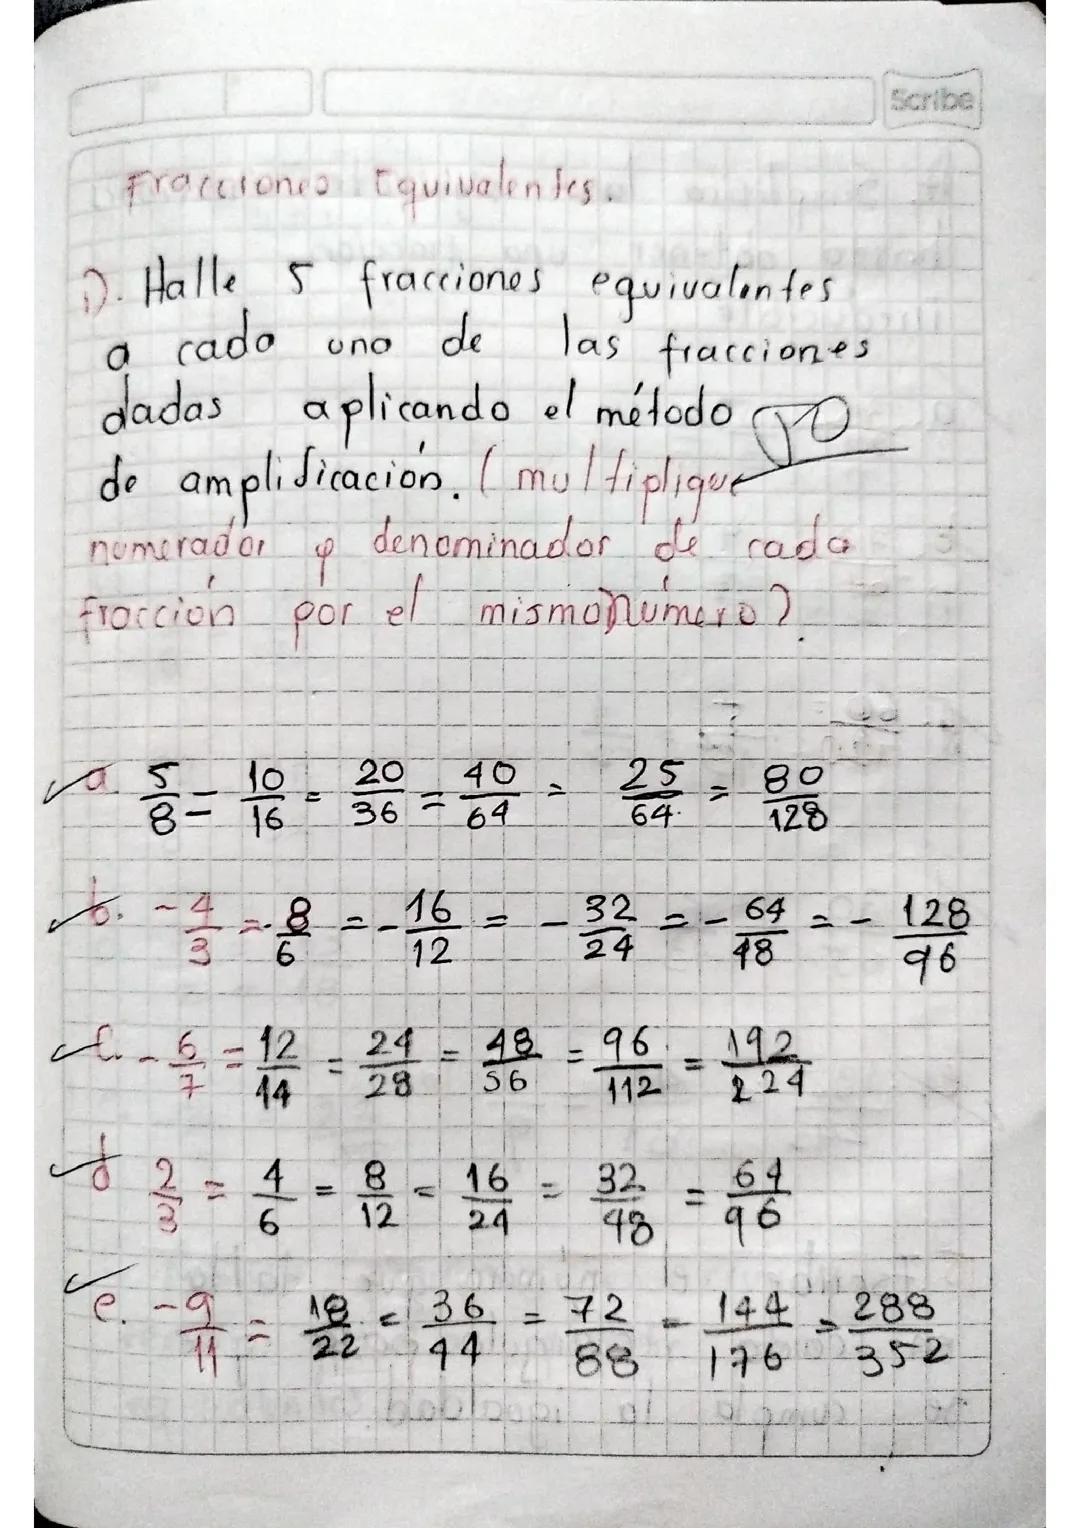 Scribe
Fracciones Equivalentes.
1). Halle 5 fracciones equivalentes
a cada una de las fracciones
dadas aplicando el método
de amplificación. (multiplique
numerador y denominador de cada
fracción por el mismo número).
a 5/8 = 10/16 = 20/36 = 40/64 = 25/64 = 80/128
b. -4/3 = -8/6 = -16/12 = -32/24 = -64/48 = -128/96
c. -6/7 = 12/14 = 24/28 = 48/56 = 96/112 = 192/224
d 2/3 = 4/6 = 8/12 = 16/24 = 32/48 = 64/96
e. -9/11 = 18/22 = 36/44 = 72/88 = 144/176 = 288/352